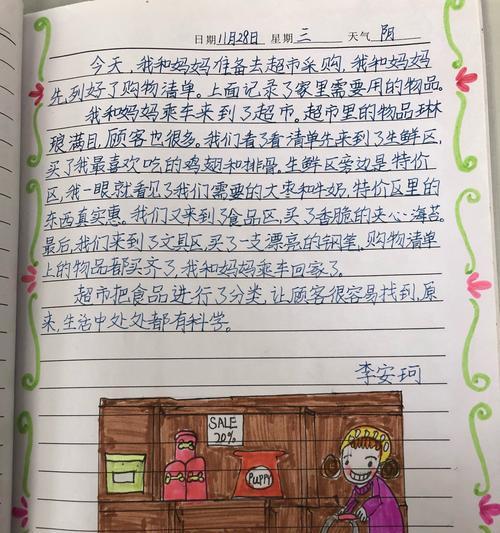 日期 11月28日 星期 三 天气 阴
今天,我和妈妈准备去超市采购,我和妈妈
先列好了购物清单。上面记录了家里需要用的物品。
我和妈妈乘车来到了超市。超市里的物品琳
琅满目,顾客也很多。我们看了看清单先来到了生鲜区,
买了我最喜欢吃的鸡翅和排骨。生鲜区旁边是特价
区,我一眼就看见了我们需要的大枣和牛奶,特价区里的
东西真实惠。我们又来到了食品区,买了香脆的夹心海苔。
最后,我们来到了文具区,买了一支漂亮的钢笔。购物清单
上的物品都买齐了,我和妈妈乘车回家了。
超市把食品进行了分类,让顾客很容易找到,原
来,生活中处处都有科学。
李安珂
SALE
20%
PUPPY